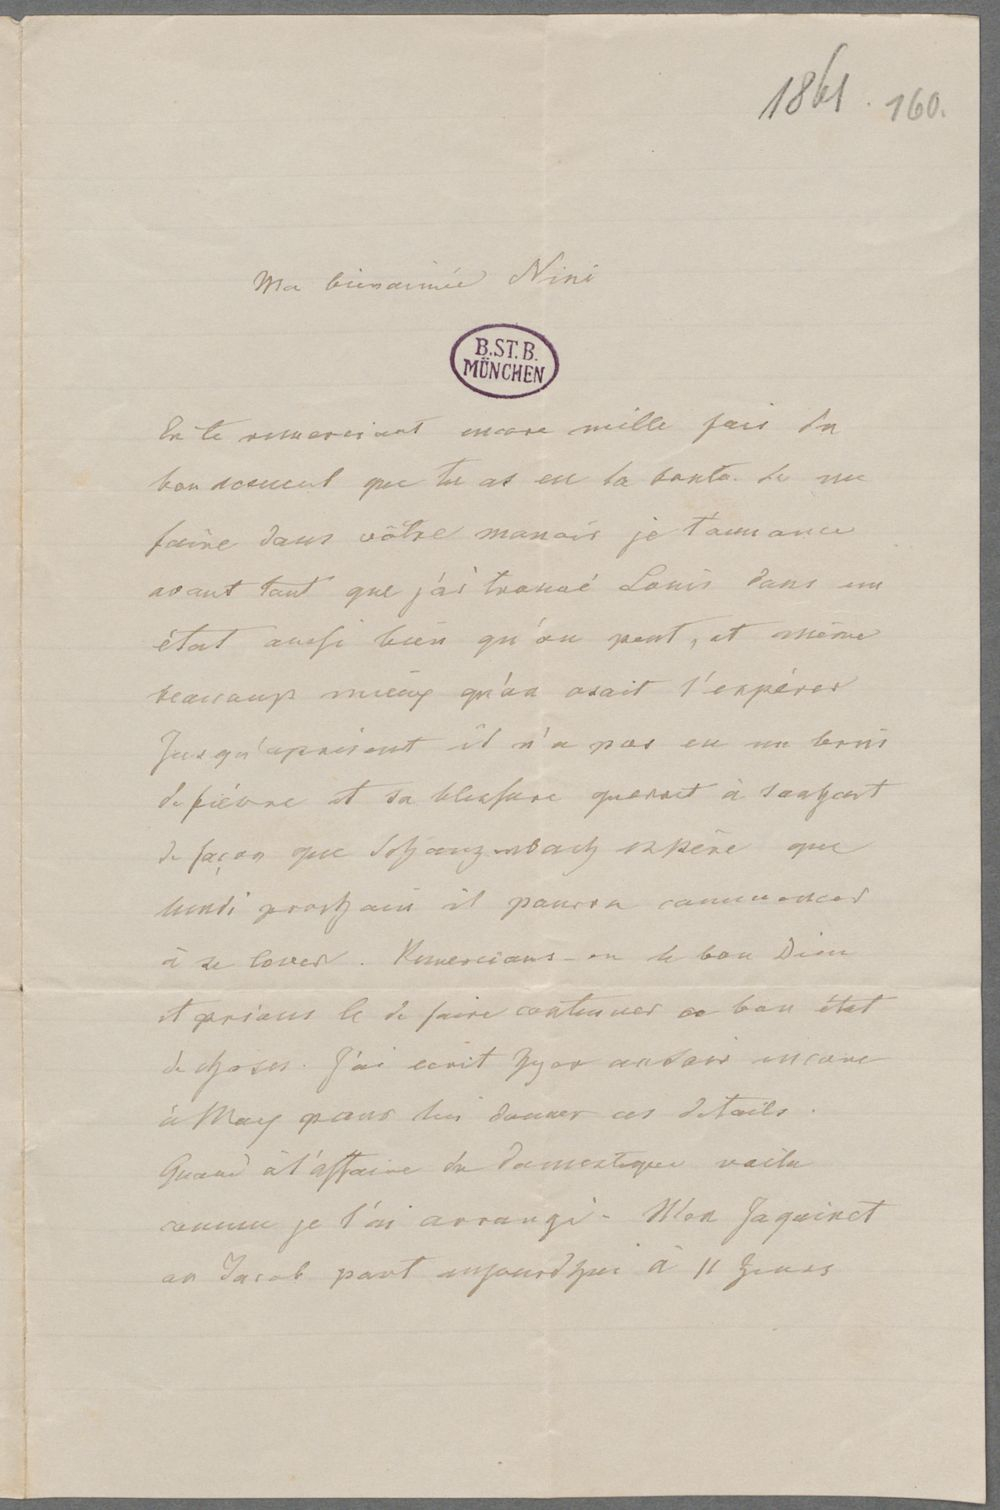 1861. 160.
Ma bienaimée Nini
B.ST.B.
MÜNCHEN
En te remerciant encore mille fois du
bon acceuil que tu as eu la bonté de me
faire dans vôtre manoir je t'announce
avant tout que j'ai trouvé Louis dans un
état aussi bien qu'on peut, et même
beaucoup mieux qu'on osait l'expérer
Jusqu'aprésent il n'a pas eu un brin
de fiévre et sa blessure guerrit à souhait
de façon que Schanzenbach expère que
lundi prochain il pourra commencer
à se lever. Remercions-en le bon Dieu
et prions le de faire continuer ce bon état
de choses. J'ai ecrit hyer au soir encore
à May pour lui donner ces détails.
Quand à l'affaire du domestique voila
comme je l'ai arrangé - Mon Jaquinet
ou Jacob part aujourdhui à 11 heures